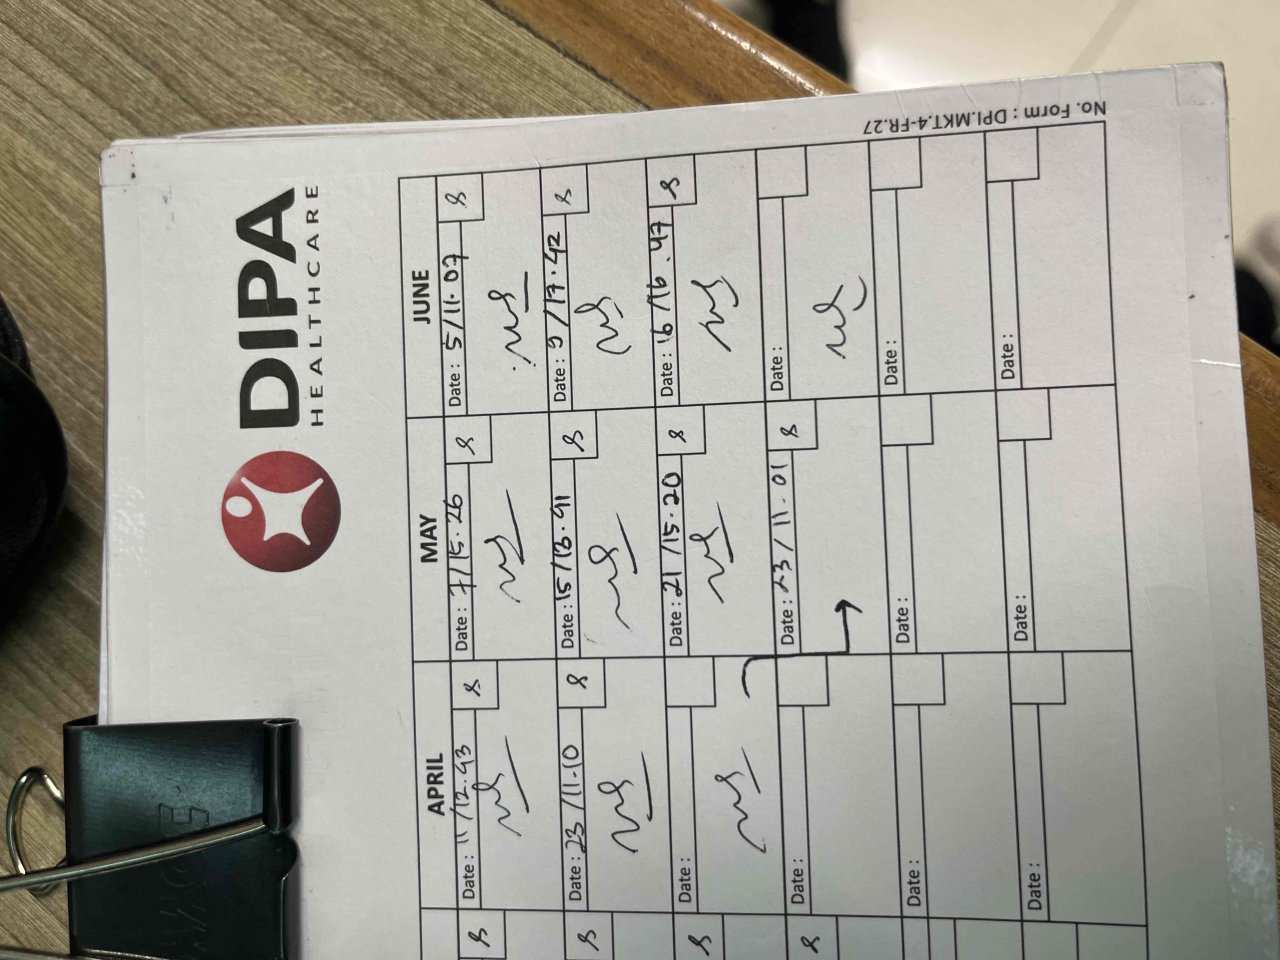 DIPA
HEALTHCARE
APRIL MAY JUNE
Date : 11/12.43 Date : 7/15.26 Date : 5/11.07
Date : 23/11.10 Date : 15/13.41 Date : 9/17.42
Date : Date : 21/15.20 Date : 16/16.47
Date : Date : 23/11.01 Date :
Date : Date : Date :
Date : Date : Date :
No. Form : DPI.MKT.4-FR.27